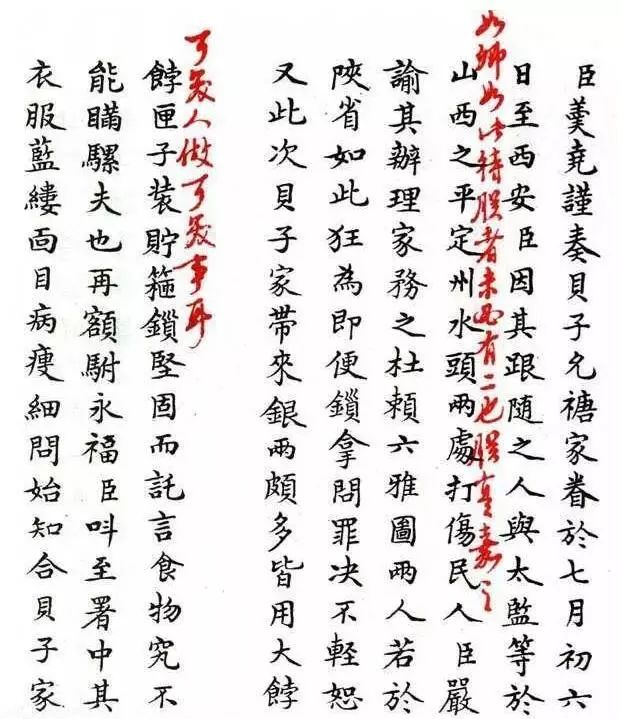 臣羹堯謹奏貝子允禟家眷於七月初六
日至西安臣因其跟隨之人與太監等於
如卿如此待朕者未必有二也朕真嘉之
山西之平定州水頭兩處打傷民人臣嚴
諭其辦理家務之杜賴六雅圖兩人若於
陝省如此狂為即便鎖拿問罪决不輕恕
又此次貝子家帶來銀兩頗多皆用大餑
可笑人做可笑事耳
餑匣子装貯箍鎖堅固而託言食物究不
能瞞騾夫也再額駙永福臣呌至署中其
衣服藍縷面目病瘦細問始知合貝子家